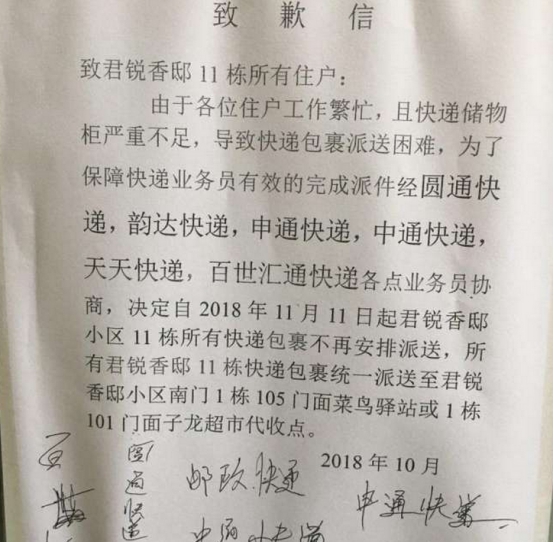 致歉信
致君锐香邸 11 栋所有住户：
由于各位住户工作繁忙，且快递储物
柜严重不足，导致快递包裹派送困难，为了
保障快递业务员有效的完成派件经圆通快
递，韵达快递，申通快递，中通快递，
天天快递，百世汇通快递各点业务员协
商，决定自 2018 年 11 月 11 日起君锐香邸
小区 11 栋所有快递包裹不再安排派送，所
有君锐香邸 11 栋快递包裹统一派送至君锐
香邸小区南门 1 栋 105 门面菜鸟驿站或 1 栋
101 门面子龙超市代收点。
2018 年 10 月
百
圆通快递
邮政快递
申通快递
中通快递